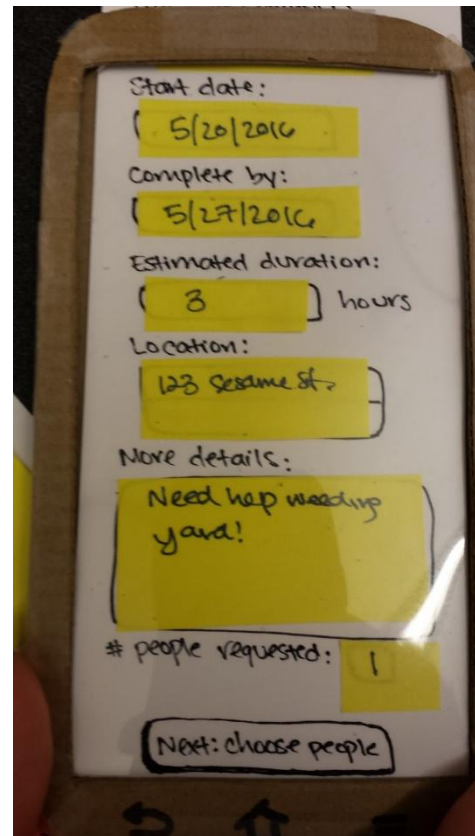 Start date:
5/20/2016
Complete by:
5/27/2016
Estimated duration:
3 hours
Location:
123 Sesame St.
More details:
Need hep weeding
yard!
# people requested: 1
Next: choose people